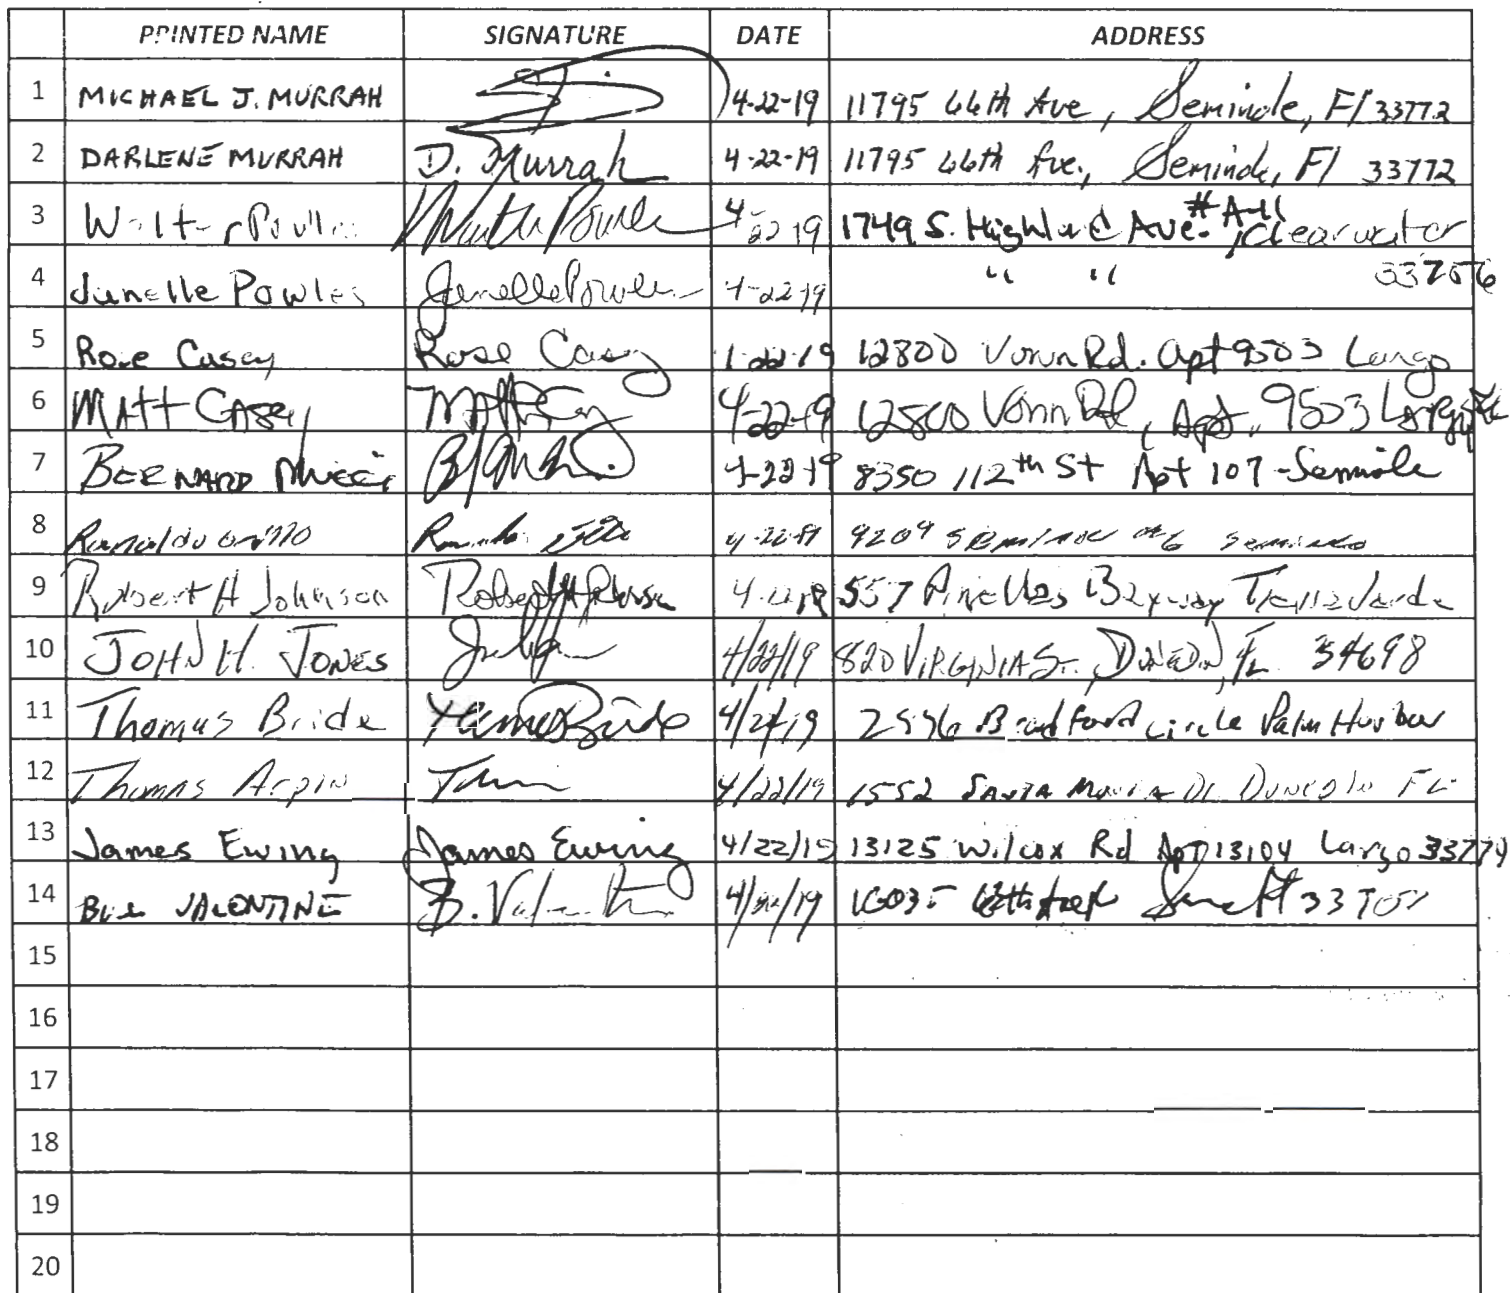 PRINTED NAME SIGNATURE DATE ADDRESS
1 MICHAEL J. MURRAH 4-22-19 11795 66th Ave, Seminole, Fl 33772
2 DARLENE MURRAH D. Murrah 4-22-19 11795 66th Ave., Seminole, Fl 33772
3 Walter Powles Walter Powles 4-22-19 1749 S. Highland Ave. #A-11, Clearwater
4 Janelle Powles Janelle Powles 4-22-19 " " 33756
5 Rose Casey Rose Casey 4-22-19 12800 Vonn Rd. Apt 9503 Largo
6 MATT CASEY Matt Casey 4-22-19 12800 Vonn Rd, Apt. 9503 Largo, FL
7 BERNARD MUCCI 4-22-19 8350 112th St Apt 107 - Seminole
8 Ronaldo 4-22-19 9209 Seminole #6 Seminole
9 Robert H Johnson Robert H Johnson 4-22-19 557 Pinellas Bayway Tierra Verde
10 JOHN H. JONES 4/22/19 820 VIRGINIA ST. DUNEDIN, FL 34698
11 Thomas Bride Thomas Bride 4/2/19 2596 Bradford circle Palm Harbor
12 Thomas Arpin 4/22/19 1552 SANTA MARIA Dr. DUNEDIN FL
13 James Ewing James Ewing 4/22/19 13125 Wilcox Rd Apt 13104 Largo 33774
14 BILL VALENTINE B. Valentine 4/22/19
15
16
17
18
19
20